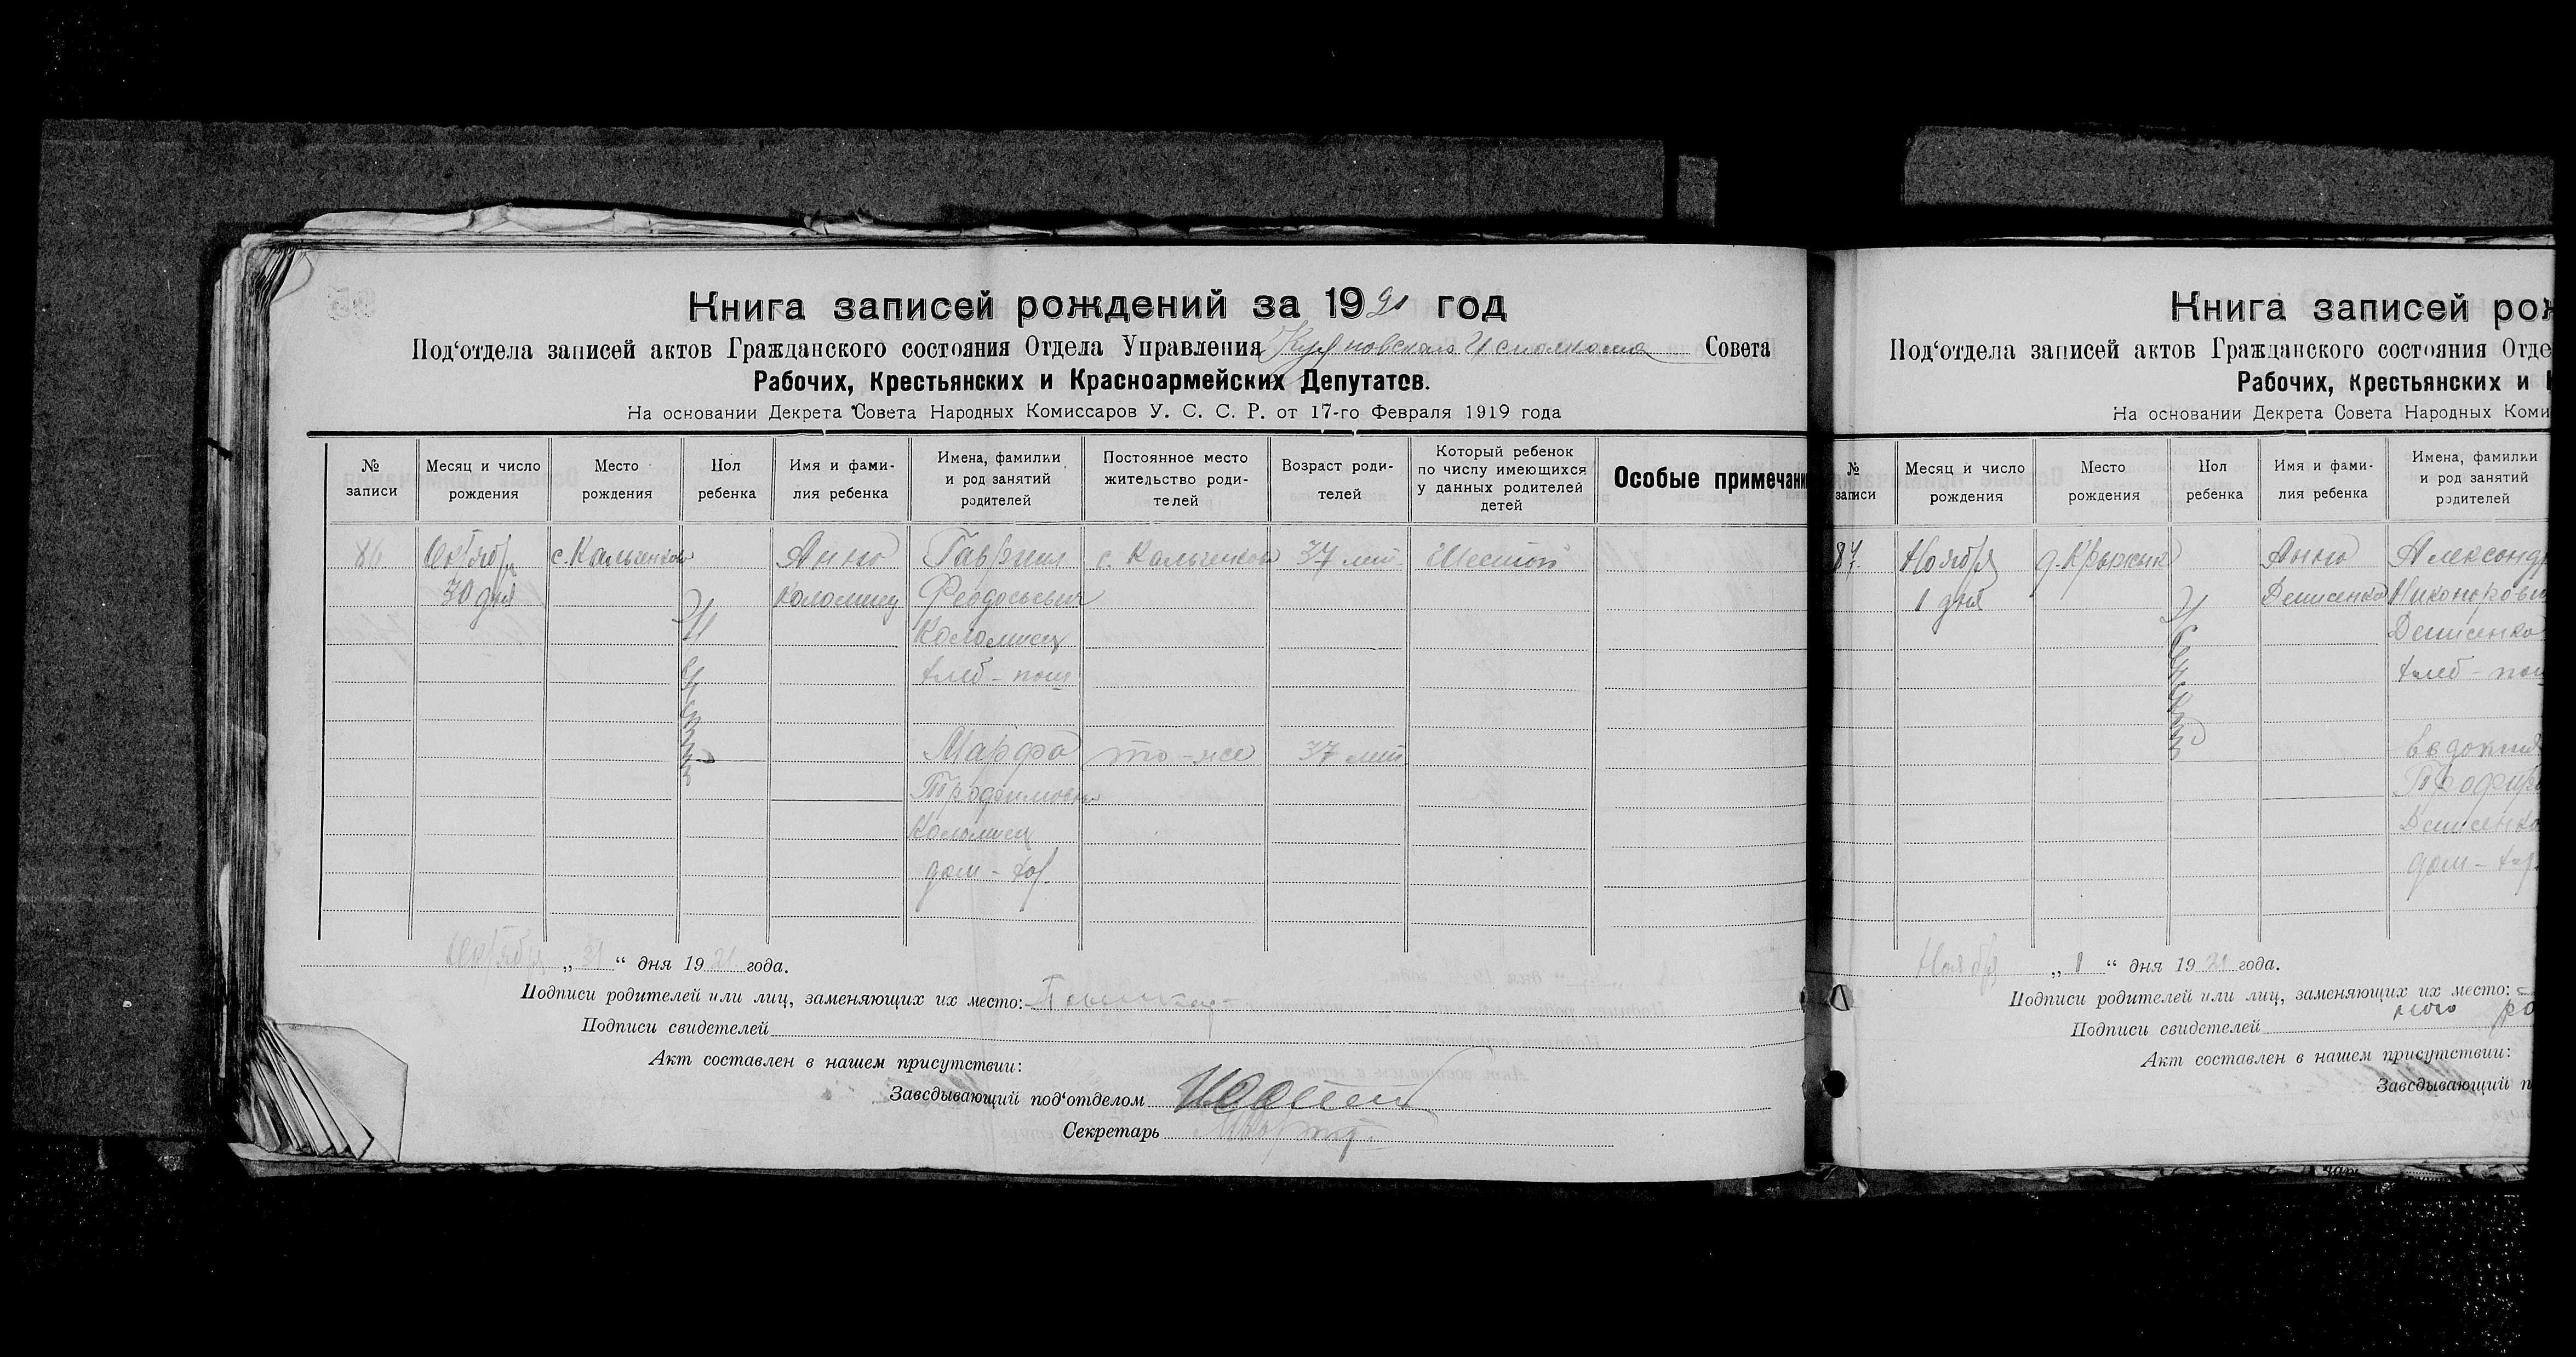 Книга записей рождений за 1921 год
Под‘отдела записей актов Гражданского состояния Отдела Управления Исполкома Совета
Рабочих, Крестьянских и Красноармейских Депутатов.
На основании Декрета Совета Народных Комиссаров У. С. С. Р. от 17-го Февраля 1919 года
№ записи
Месяц и число рождения
Место рождения
Пол ребенка
Имя и фами-
лия ребенка
Имена, фамилии
и род занятий
родителей
Постоянное место
жительство роди-
телей
Возраст роди-
телей
Который ребенок
по числу имеющихся
у данных родителей
детей
Особые примечани
86 Октября с. Кальченково Анна Гавриил с. Кальченково 37 лет Шестой
30 дня Коломиец Феодосьевич
Женский
Коломиец
хлеб-паш
Марфа то-же 37 лет
Трофимовна
Коломиец
дом-хоз.
Октября „ 31 “ дня 1921 года.
Подписи родителей или лиц, заменяющих их место:
Подписи свидетелей
Акт составлен в нашем присутствии:
Заведывающий под‘отделом
Секретарь
Книга записей рож
Под‘отдела записей актов Гражданского состояния Отде
Рабочих, Крестьянских и К
На основании Декрета Совета Народных Коми
№ записи
Месяц и число рождения
Место рождения
Пол ребенка
Имя и фами-
лия ребенка
Имена, фамилии
и род занятий
родителей
87 Ноября Анна Александр
1 дня Денисенко Никоноров
Женский
Денисенко
хлеб-паш
Евдокия
Денисенко
дом-хоз.
Ноября „ 1 “ дня 1921 года.
Подписи родителей или лиц, заменяющих их место:
Подписи свидетелей
Акт составлен в нашем присутствии:
Заведывающий п